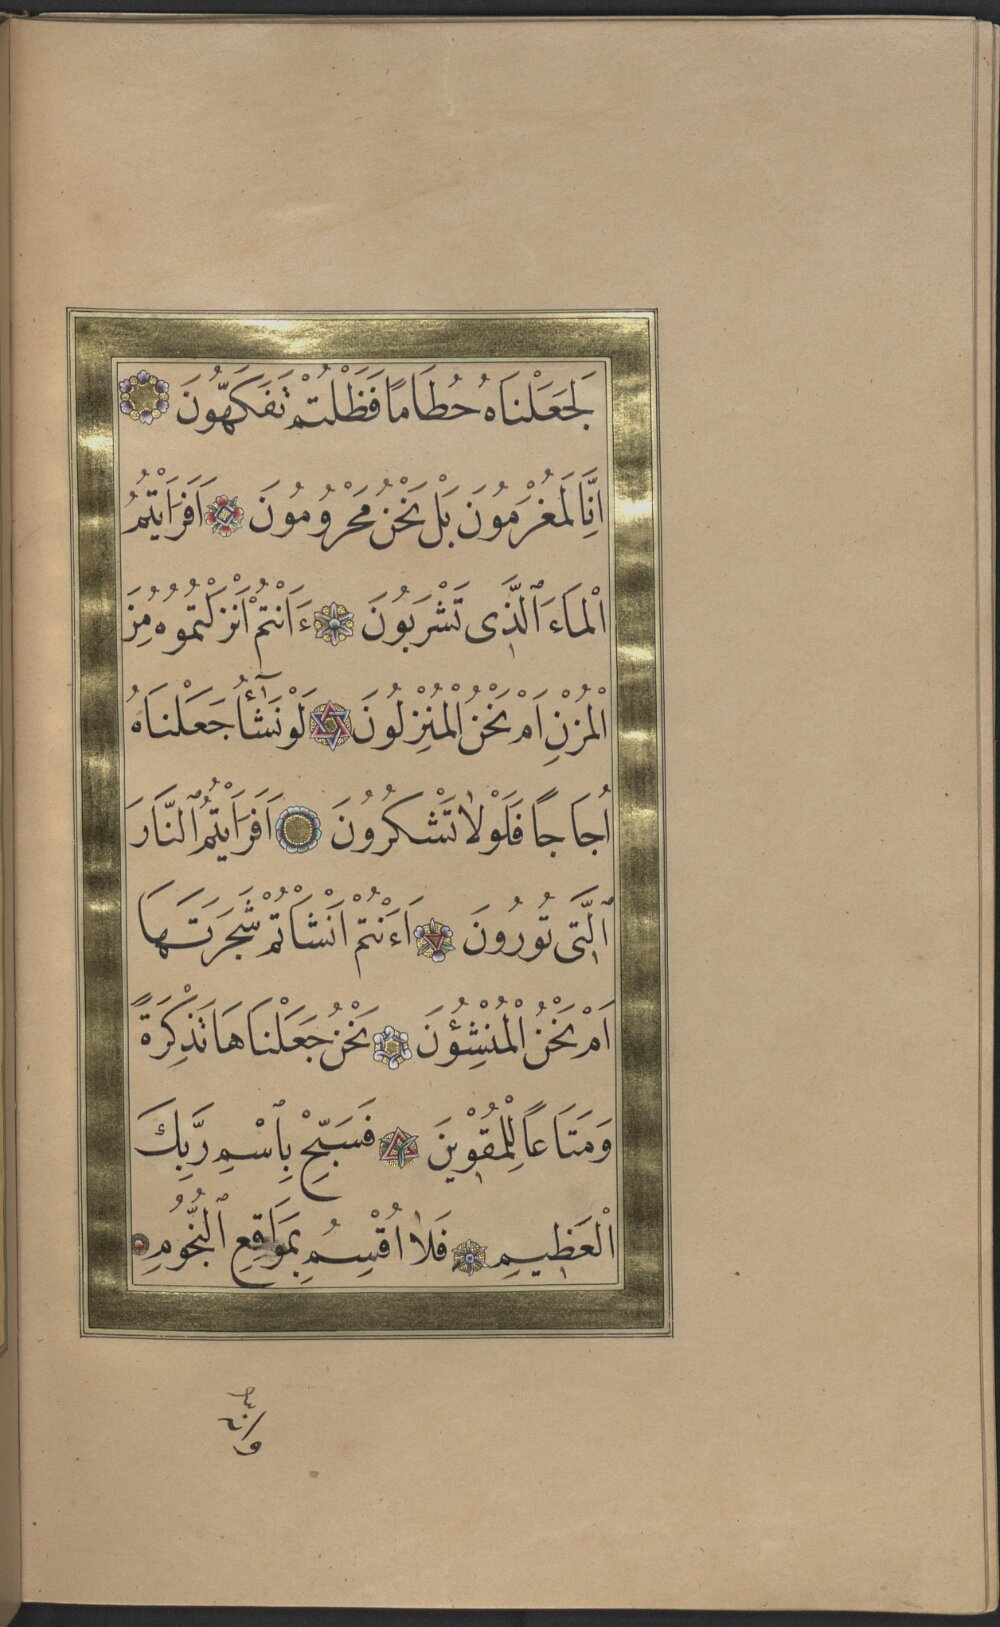 لَجَعَلْنَاهُ حُطَامًا فَظَلْتُمْ تَفَكَّهُونَ
اِنَّا لَمُغْرَمُونَ بَلْ نَحْنُ مَحْرُومُونَ اَفَرَاَيْتُمُ
الْمَاءَ الَّذِى تَشْرَبُونَ ءَاَنْتُمْ اَنْزَلْتُمُوهُ مِنَ
الْمُزْنِ اَمْ نَحْنُ الْمُنْزِلُونَ لَوْ نَشَآءُ جَعَلْنَاهُ
اُجَاجًا فَلَوْلَا تَشْكُرُونَ اَفَرَاَيْتُمُ النَّارَ
الَّتِى تُورُونَ ءَاَنْتُمْ اَنْشَاْتُمْ شَجَرَتَهَا
اَمْ نَحْنُ الْمُنْشِؤُنَ نَحْنُ جَعَلْنَاهَا تَذْكِرَةً
وَمَتَاعًا لِلْمُقْوِينَ فَسَبِّحْ بِاسْمِ رَبِّكَ
الْعَظِيمِ فَلَا اُقْسِمُ بِمَوَاقِعِ النُّجُومِ